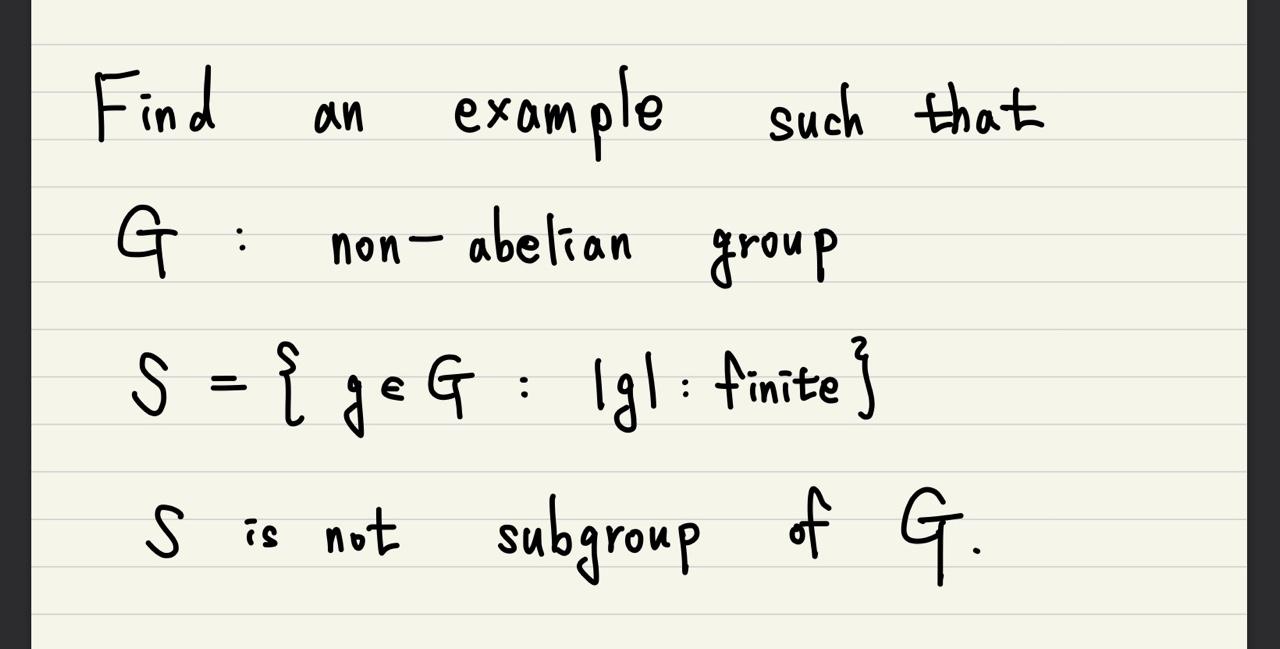 Find an example such that
G : non-abelian group
S = { g ∈ G : |g| : finite }
S is not subgroup of G.